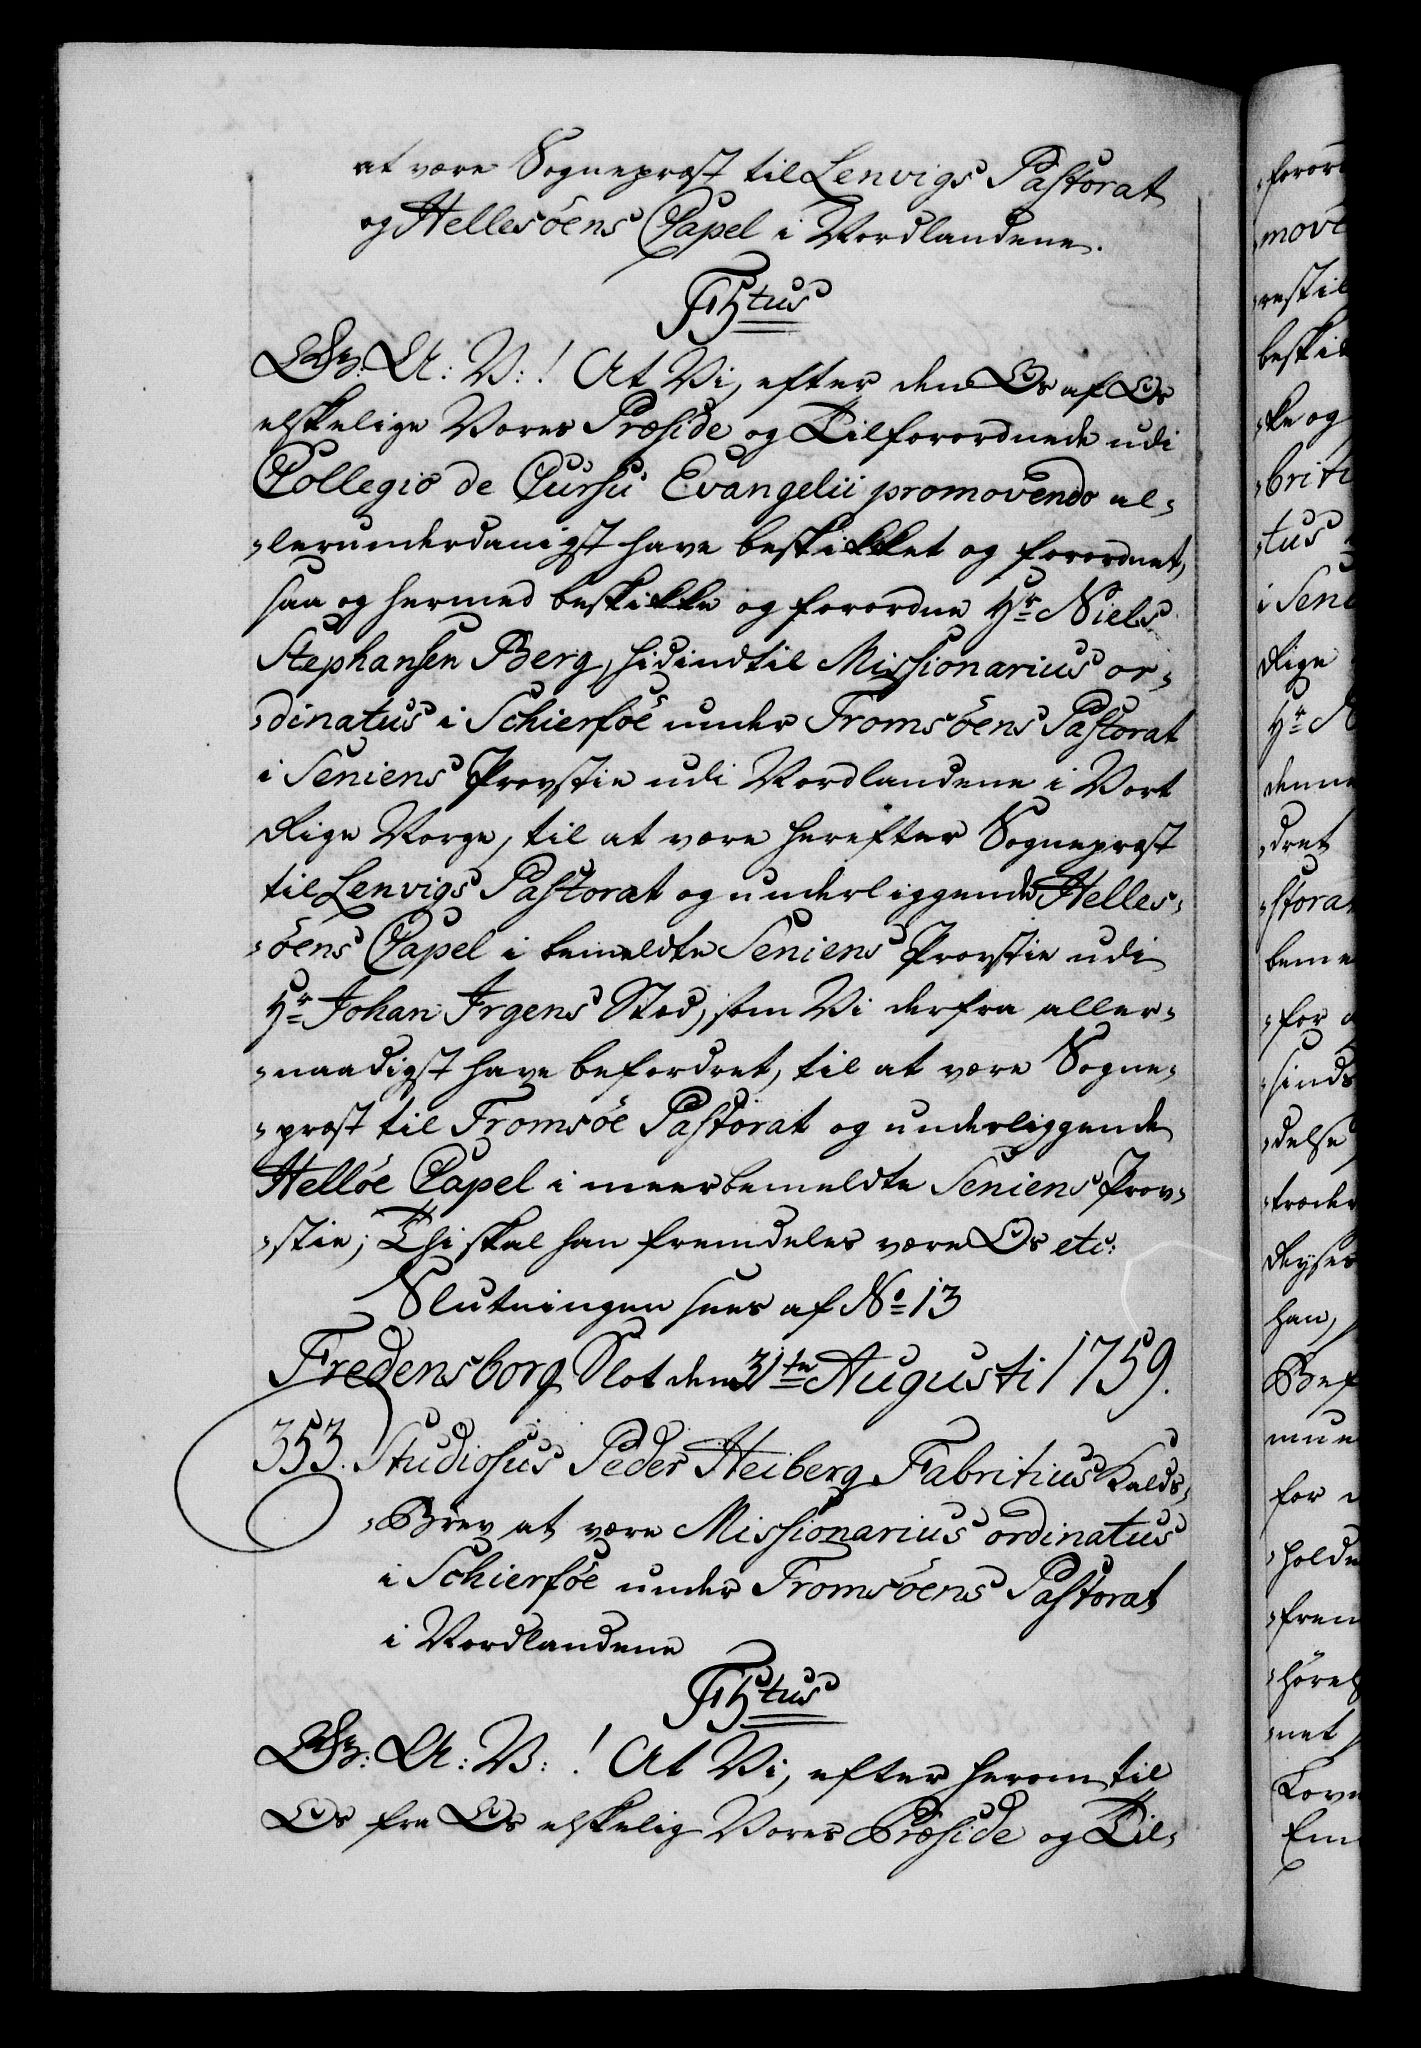 at være Sognepræst til Lenvigs Pastorat
og Hellesöens Capel i Nordlandene.
F5tus
Gr: A: V: ! At Vi, efter den Os af Os
elskelige Vores Præside og Tilforordnede udi
Collegio de Cursu Evangelii promovendo al-
-lerunderdanigst have beskikket og forordnet,
saa og hermed beskikke og forordne Hr Niels
Stephansen Berg, hidindtil Missionarius or-
-dinatus i Schierföe under Tromsöens Pastorat
i Seniens Provstie udi Nordlandene i Vort
Rige Norge, til at være herefter Sognepræst
til Lenvigs Pastorat og underliggende Helles-
-öens Capel i bemeldte Seniens Provstie udi
Hr Johan Irgens Sted, som Vi derfra aller-
-naadigst have befordret, til at være Sogne-
-præst til Tromsöe Pastorat og underliggende
Hellöe Capel i meerbemeldte Seniens Prov-
-stie; Thi skal han fremdeles være Os etc:
Slutningen sees af No 13
Fredensborg Slot den 31te Augusti 1759.
353. Studiosus Peder Heiberg Fabritius Kalds-
-Brev at være Missionarius ordinatus
i Schierföe under Tromsöens Pastorat
i Nordlandene
F5tus
Gr: A: V: ! At Vi, efter herom til
Os fra Os elskelig Vores Præside og Til-